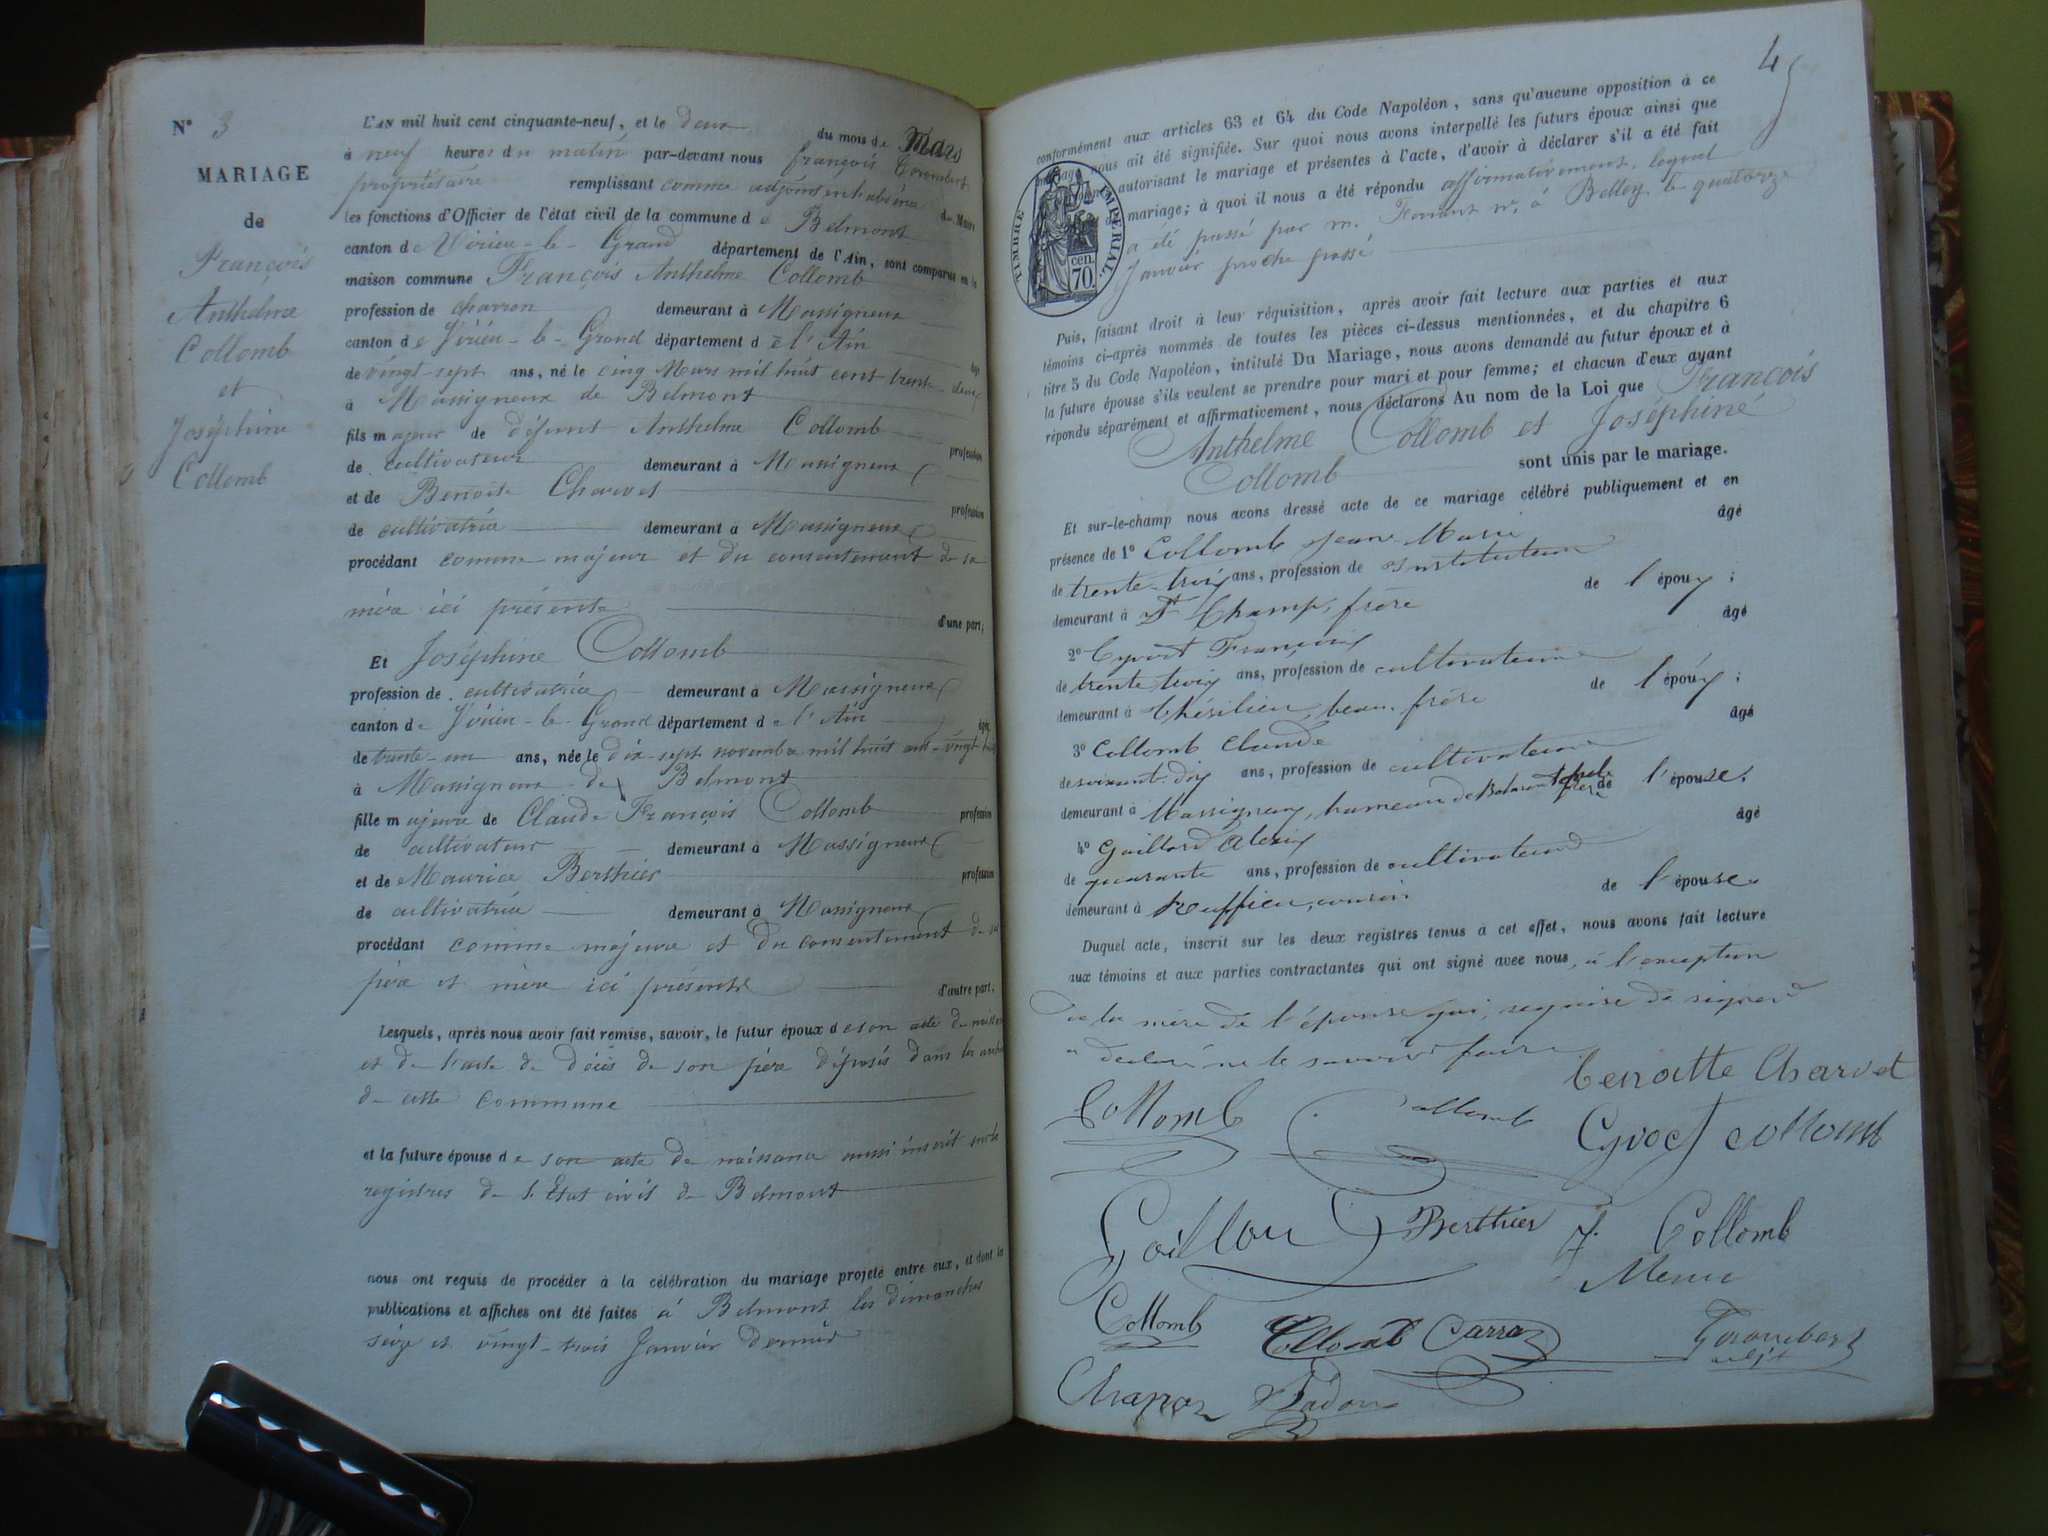 N° 3
MARIAGE
de
François
Anthelme
Collomb
et
Joséphine
Collomb
L'AN mil huit cent cinquante-neuf, et le deux du mois de Mars
à neuf heures du matin par-devant nous françois
propriétaire remplissant comme adjoint de Maire
les fonctions d'Officier de l'état civil de la commune de Belmont
canton de Virieu-le-Grand département de l'Ain, sont comparus en la
maison commune François Anthelme Collomb
profession de charron demeurant à Massigneux
canton de Virieu-le-Grand département de l'Ain âgé
de vingt-sept ans, né le cinq Mars mil huit cent trente-deux
à Massigneux de Belmont
fils majeur de défunt Anthelme Collomb profession
de cultivateur demeurant à Massigneux
et de Benoite Charvet profession
de cultivatrice demeurant à Massigneux
procédant comme majeur et du consentement de sa
mère ici présente d'une part;
Et Joséphine Collomb
profession de cultivatrice demeurant à Massigneux
canton de Virieu-le-Grand département de l'Ain âgée
de trente-un ans, née le dix-sept novembre mil huit cent vingt
à Massigneux de Belmont
fille majeure de Claude François Collomb profession
de cultivateur demeurant à Massigneux
et de Maurice Berthier profession
de cultivatrice demeurant à Massigneux
procédant comme majeure et du consentement de ses
père et mère ici présents d'autre part.
Lesquels, après nous avoir fait remise, savoir, le futur époux de son acte de naissance
et de l'acte de décès de son père déposés dans les archives
de cette commune
et la future épouse de son acte de naissance aussi inscrit sur les
registres de l'État civil de Belmont
nous ont requis de procéder à la célébration du mariage projeté entre eux, et dont les
publications et affiches ont été faites à Belmont les dimanches
seize et vingt-trois Janvier dernier
45
conformément aux articles 63 et 64 du Code Napoléon, sans qu'aucune opposition à ce
mariage nous ait été signifiée. Sur quoi nous avons interpellé les futurs époux ainsi que
autorisant le mariage et présentes à l'acte, d'avoir à déclarer s'il a été fait
mariage; à quoi il nous a été répondu affirmativement, lequel
a été passé par m. Ferrant nre à Belley le quatorze
Janvier proche passé
TIMBRE IMPÉRIAL
70 cen.
Puis, faisant droit à leur réquisition, après avoir fait lecture aux parties et aux
témoins ci-après nommés de toutes les pièces ci-dessus mentionnées, et du chapitre 6
titre 5 du Code Napoléon, intitulé Du Mariage, nous avons demandé au futur époux et à
la future épouse s'ils veulent se prendre pour mari et pour femme; et chacun d'eux ayant
répondu séparément et affirmativement, nous déclarons Au nom de la Loi que François
Anthelme Collomb et Joséphine
Collomb sont unis par le mariage.
Et sur-le-champ nous avons dressé acte de ce mariage célébré publiquement et en
présence de 1° Collomb Jean-Marie âgé
de trente-trois ans, profession de Instituteur
demeurant à St Champ, frère de l'époux;
2° Cyvoct François âgé
de trente trois ans, profession de cultivateur
demeurant à Thésilieu, beau-frère de l'époux;
3° Collomb Claude âgé
de soixante-dix ans, profession de cultivateur
demeurant à Massigneux, hameau de Belmont de l'épouse.
4° Gaillard Alexis âgé
de quarante ans, profession de cultivateur
demeurant à Ruffieu, cousin de l'épouse.
Duquel acte, inscrit sur les deux registres tenus à cet effet, nous avons fait lecture
aux témoins et aux parties contractantes qui ont signé avec nous, à l'exception
de la mère de l'épouse qui, requise de signer
a déclaré ne le savoir faire
benoitte Charvet
Collomb Collomb
Cyvoct collomb
Gaillard Berthier J. Collomb
Collomb Collomb Carraz
adjt
Charraz